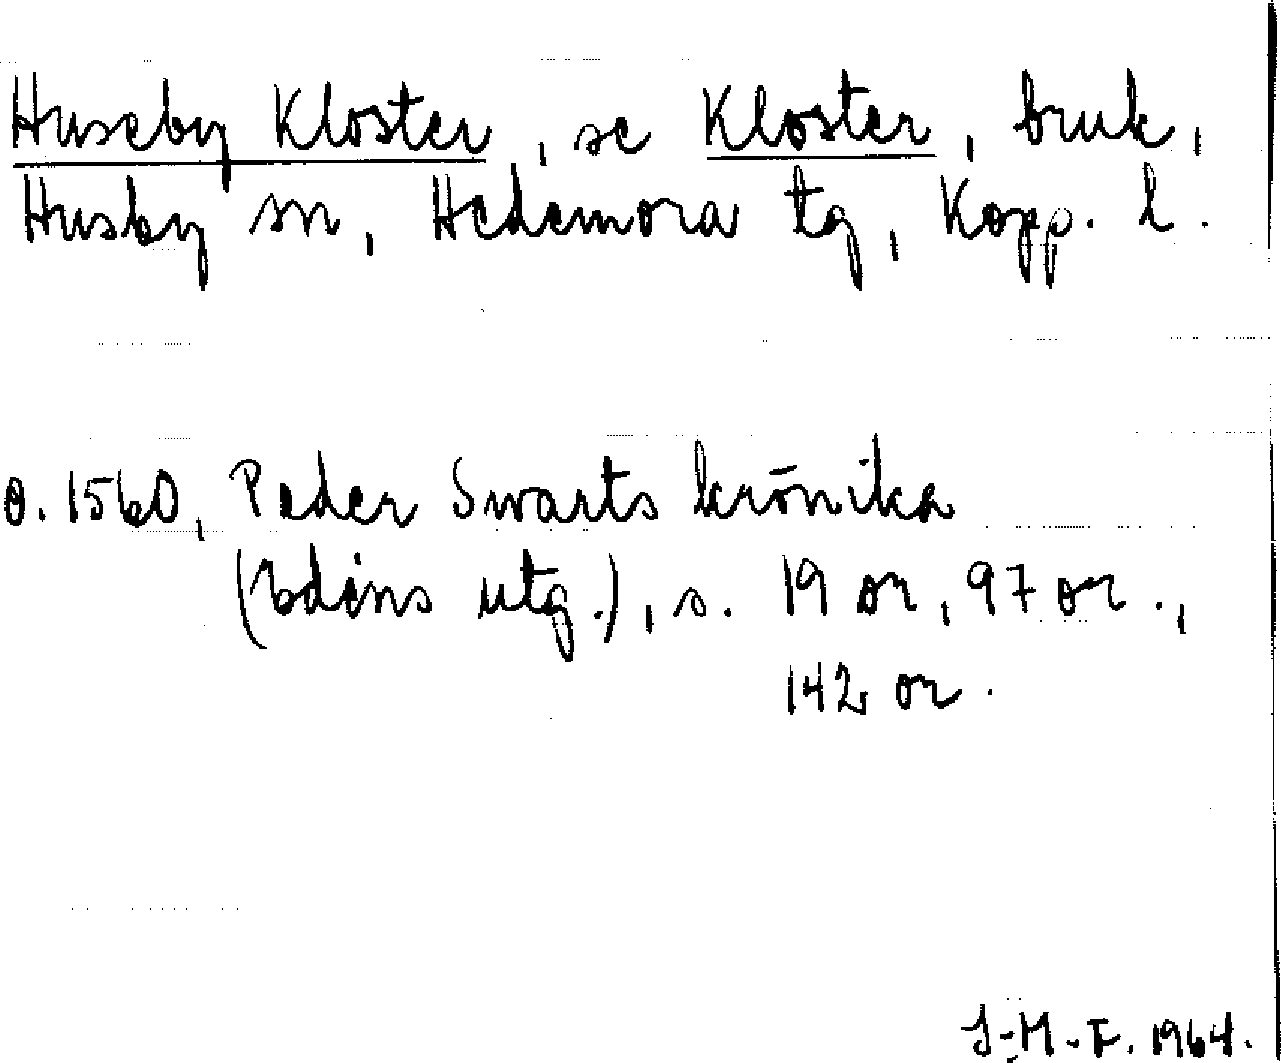 Huseby Kloster, se Kloster, bruk,
Husby sn, Hedemora tg, Kopp. l.
o. 1560, Peder Swarts krönika
(Edéns utg.), s. 19 or, 97 or.,
142 or.
J-M.F. 1964.